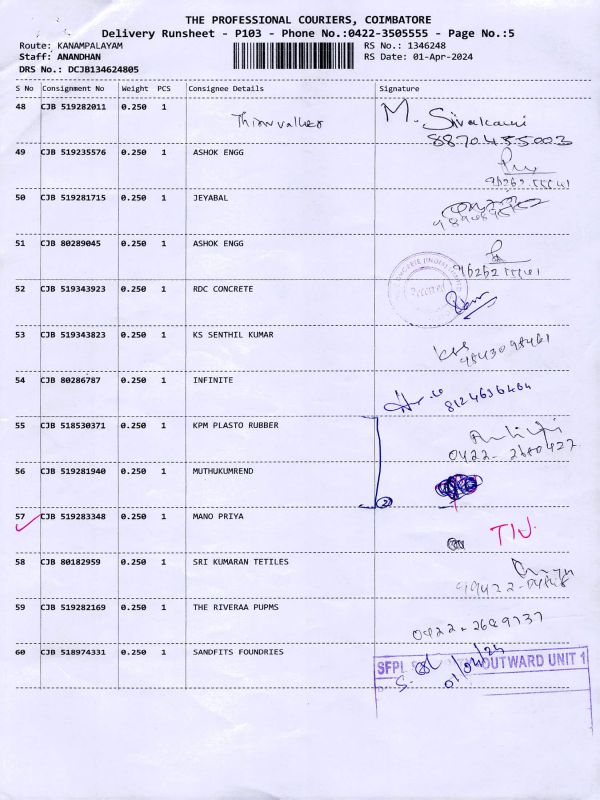 THE PROFESSIONAL COURIERS, COIMBATORE
Delivery Runsheet - P103 - Phone No.:0422-3505555 - Page No.:5
Route: KANAMPALAYAM RS No.: 1346248
Staff: ANANDHAN RS Date: 01-Apr-2024
DRS No.: DCJB134624805
S No Consignment No Weight PCS Consignee Details Signature
48 CJB 519282011 0.250 1 M. Sivakami
8870455003
49 CJB 519235576 0.250 1 ASHOK ENGG
50 CJB 519281715 0.250 1 JEYABAL
51 CJB 80289045 0.250 1 ASHOK ENGG
52 CJB 519343923 0.250 1 RDC CONCRETE
53 CJB 519343823 0.250 1 KS SENTHIL KUMAR
9843098461
54 CJB 80286787 0.250 1 INFINITE
8124636464
55 CJB 518530371 0.250 1 KPM PLASTO RUBBER
0422-2680427
56 CJB 519281940 0.250 1 MUTHUKUMREND
2
57 CJB 519283348 0.250 1 MANO PRIYA
58 CJB 80182959 0.250 1 SRI KUMARAN TETILES
59 CJB 519282169 0.250 1 THE RIVERAA PUPMS
0422-2689737
60 CJB 518974331 0.250 1 SANDFITS FOUNDRIES
SFPL OUTWARD UNIT 1
01/04/24